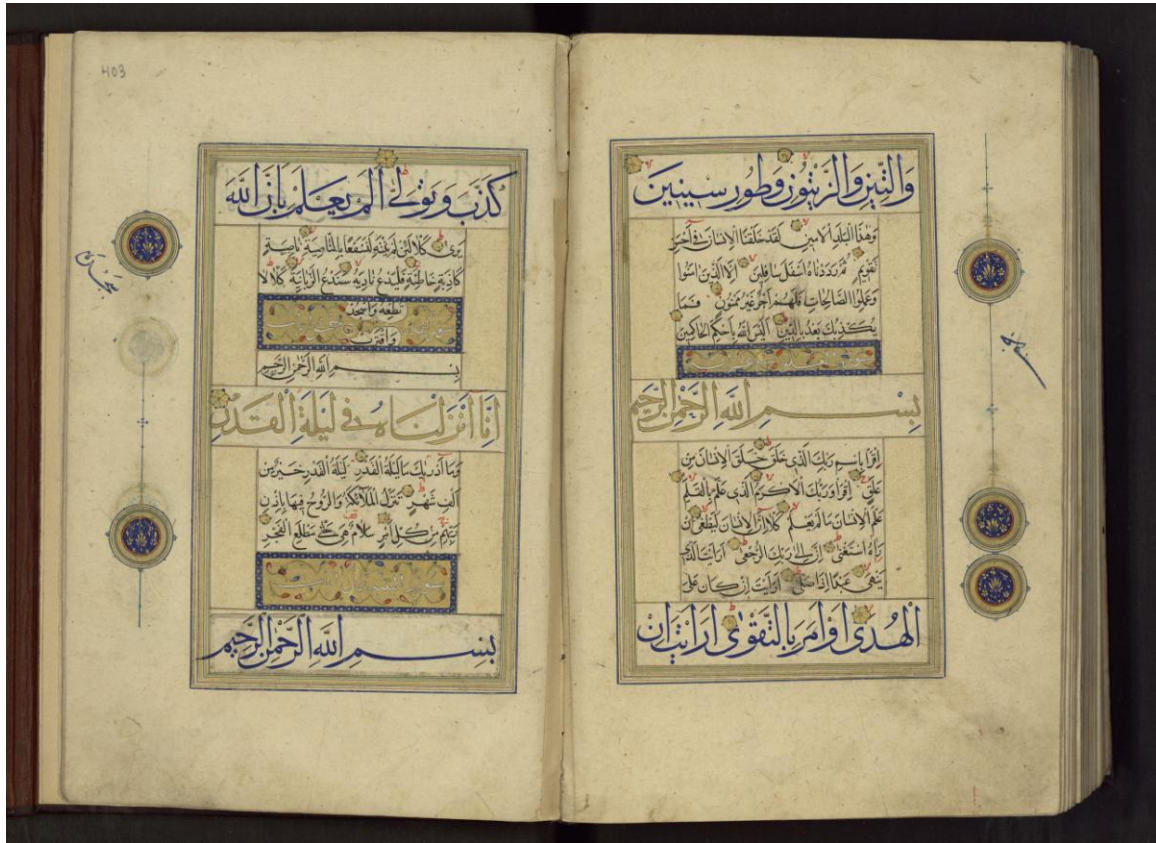 وَالتِّينِ وَالزَّيْتُونِ وَطُورِ سِينِينَ
وَهٰذَا الْبَلَدِ الْأَمِينِ لَقَدْ خَلَقْنَا الْإِنْسَانَ فِي أَحْسَنِ
تَقْوِيمٍ ثُمَّ رَدَدْنَاهُ أَسْفَلَ سَافِلِينَ إِلَّا الَّذِينَ آمَنُوا
وَعَمِلُوا الصَّالِحَاتِ فَلَهُمْ أَجْرٌ غَيْرُ مَمْنُونٍ فَمَا
يُكَذِّبُكَ بَعْدُ بِالدِّينِ أَلَيْسَ اللَّهُ بِأَحْكَمِ الْحَاكِمِينَ
بِسْمِ اللَّهِ الرَّحْمٰنِ الرَّحِيمِ
اقْرَأْ بِاسْمِ رَبِّكَ الَّذِي خَلَقَ خَلَقَ الْإِنْسَانَ مِنْ
عَلَقٍ اقْرَأْ وَرَبُّكَ الْأَكْرَمُ الَّذِي عَلَّمَ بِالْقَلَمِ
عَلَّمَ الْإِنْسَانَ مَا لَمْ يَعْلَمْ كَلَّا إِنَّ الْإِنْسَانَ لَيَطْغَى أَنْ
رَآهُ اسْتَغْنَى إِنَّ إِلَى رَبِّكَ الرُّجْعَى أَرَأَيْتَ الَّذِي
يَنْهَى عَبْدًا إِذَا صَلَّى أَرَأَيْتَ إِنْ كَانَ عَلَى
الْهُدَى أَوْ أَمَرَ بِالتَّقْوَى أَرَأَيْتَ إِنْ
403
كَذَّبَ وَتَوَلَّى أَلَمْ يَعْلَمْ بِأَنَّ اللَّهَ
يَرَى كَلَّا لَئِنْ لَمْ يَنْتَهِ لَنَسْفَعًا بِالنَّاصِيَةِ نَاصِيَةٍ
كَاذِبَةٍ خَاطِئَةٍ فَلْيَدْعُ نَادِيَهُ سَنَدْعُ الزَّبَانِيَةَ كَلَّا لَا
تُطِعْهُ وَاسْجُدْ
وَاقْتَرِبْ
بِسْمِ اللَّهِ الرَّحْمٰنِ الرَّحِيمِ
إِنَّا أَنْزَلْنَاهُ فِي لَيْلَةِ الْقَدْرِ
وَمَا أَدْرَاكَ مَا لَيْلَةُ الْقَدْرِ لَيْلَةُ الْقَدْرِ خَيْرٌ مِنْ
أَلْفِ شَهْرٍ تَنَزَّلُ الْمَلَائِكَةُ وَالرُّوحُ فِيهَا بِإِذْنِ
رَبِّهِمْ مِنْ كُلِّ أَمْرٍ سَلَامٌ هِيَ حَتَّى مَطْلَعِ الْفَجْرِ
بِسْمِ اللَّهِ الرَّحْمٰنِ الرَّحِيمِ